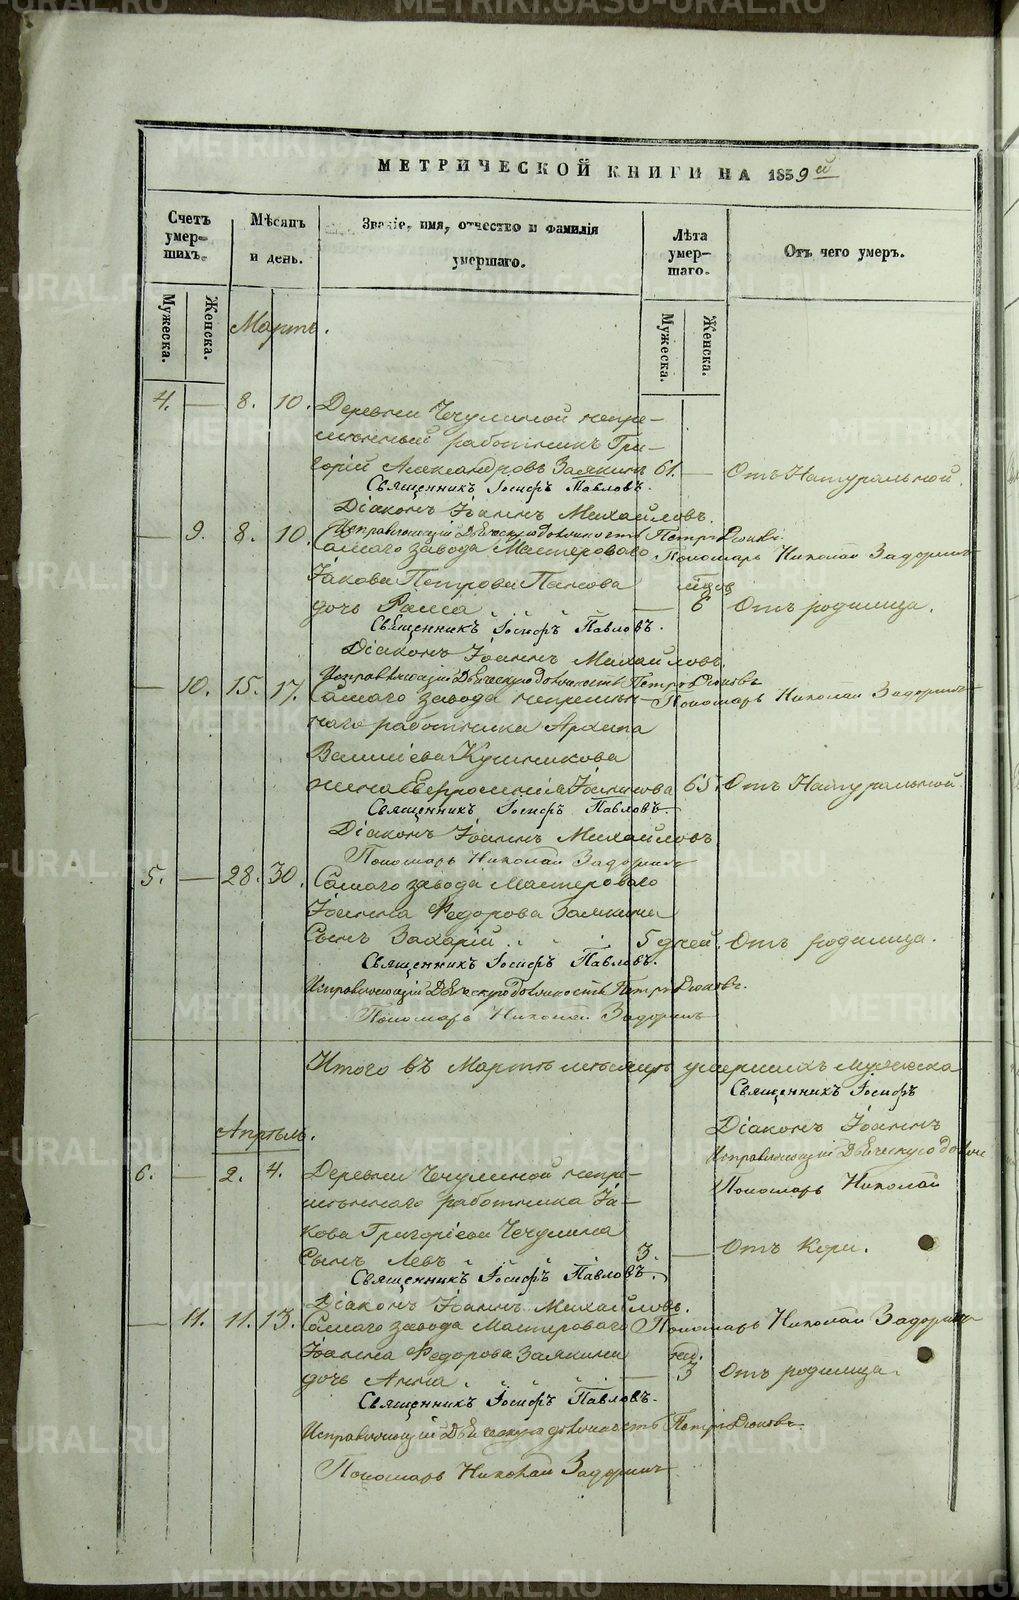 МЕТРИЧЕСКОЙ КНИГИ НА 1859й
Счетъ умер-шихъ.
Мѣсяцъ и день.
Званіе, имя, отчество и фамилія умершаго.
Лѣта умер-шаго.
Отъ чего умеръ.
Мужеска. Женска.
Мужеска. Женска.
Мартъ.
4. — 8. 10. Деревни Чечулиной непре-
мѣнный работникъ Гри-
горій Александровъ Заякинъ 61. — Отъ Натуральной.
Священникъ Іосифъ Павловъ.
Діаконъ Іоаннъ Михайловъ.
Исправляющій Дьяческую должность Петръ
— 9. 8. 10. Самаго завода Мастероваго Пономарь Николай Задоринъ
Іакова Петрова Панова мѣсяц
дочь Раиса — 6 Отъ родимца.
Священникъ Іосифъ Павловъ.
Діаконъ Іоаннъ Михайловъ.
Исправляющій Дьяческую должность Петръ
— 10. 15. 17. Самаго завода непремѣн- Пономарь Николай Задоринъ
наго работника Архипа
Василіева Кушникова
жена Евфросинія Іоаникова 65. Отъ Натуральной
Священникъ Іосифъ Павловъ.
Діаконъ Іоаннъ Михайловъ
Пономарь Николай Задоринъ
5. — 28. 30. Самаго завода Мастероваго
Іоанна Федорова Заякина
Сынъ Захарій 5 дней. Отъ родимца.
Священникъ Іосифъ Павловъ.
Исправляющій Дьяческую должность Петръ
Пономарь Николай Задоринъ
Итого въ Мартѣ мѣсяцѣ умершихъ мужеска
Священникъ Іосифъ
Діаконъ Іоаннъ
Исправляющій Дьяческую должн
Пономарь Николай
Апрѣль.
6. — 2. 4. Деревни Чечулиной непре-
мѣннаго работника Іа-
кова Григоріева Чечулина
Сынъ Левъ 3. — Отъ Кори.
Священникъ Іосифъ Павловъ.
Діаконъ Іоаннъ Михайловъ.
— 11. 11. 13. Самаго завода Мастероваго Пономарь Николай Задоринъ
Іоанна Федорова Заякина
дочь Анна — 3 Отъ родимца.
Священникъ Іосифъ Павловъ.
Исправляющій Дьяческую должность Петръ
Пономарь Николай Задоринъ
METRIKI.GASO-URAL.RU